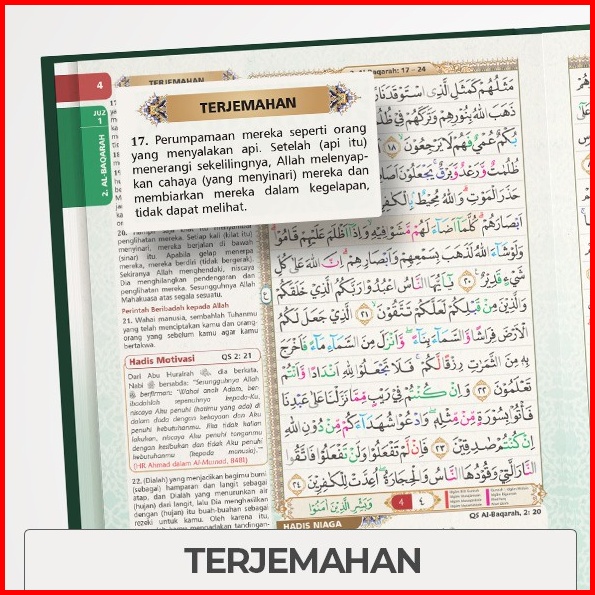 4
JUZ
1
2. AL-BAQARAH
TERJEMAHAN
Al-Baqarah: 17 - 24
TERJEMAHAN
17. Perumpamaan mereka seperti orang
yang menyalakan api. Setelah (api itu)
menerangi sekelilingnya, Allah melenyap-
kan cahaya (yang menyinari) mereka dan
membiarkan mereka dalam kegelapan,
tidak dapat melihat.
penglihatan mereka. Setiap kali (kilat itu)
menyinari, mereka berjalan di bawah
(sinar) itu. Apabila gelap menerpa
mereka, mereka berdiri (tidak bergerak).
Sekiranya Allah menghendaki, niscaya
Dia menghilangkan pendengaran dan
penglihatan mereka. Sesungguhnya Allah
Mahakuasa atas segala sesuatu.
Perintah Beribadah kepada Allah
21. Wahai manusia, sembahlah Tuhanmu
yang telah menciptakan kamu dan orang-
orang yang sebelum kamu agar kamu
bertakwa.
Hadis Motivasi QS 2: 21
Dari Abu Hurairah ؓ, dia berkata,
Nabi ﷺ bersabda: "Sesungguhnya Allah
berfirman: "Wahai anak Adam, ber-
ibadahlah sepenuhnya kepada-Ku,
niscaya Aku penuhi (hatimu yang ada) di
dalam dada dengan kekayaan dan Aku
penuhi kebutuhanmu. Jika tidak kalian
lakukan, niscaya Aku penuhi tanganmu
dengan kesibukan dan tidak Aku penuhi
kebutuhanmu (kepada manusia)."
(HR Ahmad dalam Al-Musnad, 8481)
22. (Dialah) yang menjadikan bagimu bumi
(sebagai) hamparan dan langit sebagai
atap, dan Dialah yang menurunkan air
(hujan) dari langit, lalu Dia menghasilkan
dengan (hujan) itu buah-buahan sebagai
rezeki untuk kamu. Oleh karena itu,
مَثَلُهُمْ كَمَثَلِ الَّذِى اسْتَوْقَدَ نَارًا
ذَهَبَ اللهُ بِنُوْرِهِمْ وَتَرَكَهُمْ فِيْ
بُكْمٌ عُمْيٌ فَهُمْ لَا يَرْجِعُوْنَ ١٨
ظُلُمٰتٌ وَّرَعْدٌ وَّبَرْقٌ يَجْعَلُوْنَ
حَذَرَ الْمَوْتِ وَاللهُ مُحِيْطٌ
اَبْصَارَهُمْ كُلَّمَآ اَضَاۤءَ لَهُمْ مَّشَوْا فِيْهِ وَاِذَآ اَظْلَمَ عَلَيْهِمْ قَامُوْا
وَلَوْ شَاۤءَ اللهُ لَذَهَبَ بِسَمْعِهِمْ وَاَبْصَارِهِمْ اِنَّ اللهَ عَلٰى كُلِّ
شَيْءٍ قَدِيْرٌ ٢٠ يٰٓاَيُّهَا النَّاسُ اعْبُدُوْا رَبَّكُمُ الَّذِيْ خَلَقَكُمْ
وَالَّذِيْنَ مِنْ قَبْلِكُمْ لَعَلَّكُمْ تَتَّقُوْنَ ٢١ الَّذِيْ جَعَلَ لَكُمُ
الْاَرْضَ فِرَاشًا وَّالسَّمَاۤءَ بِنَاۤءً وَّاَنْزَلَ مِنَ السَّمَاۤءِ مَاۤءً فَاَخْرَجَ
بِهٖ مِنَ الثَّمَرٰتِ رِزْقًا لَّكُمْ فَلَا تَجْعَلُوْا لِلّٰهِ اَنْدَادًا وَّاَنْتُمْ
تَعْلَمُوْنَ ٢٢ وَاِنْ كُنْتُمْ فِيْ رَيْبٍ مِّمَّا نَزَّلْنَا عَلٰى عَبْدِنَا
فَأْتُوْا بِسُوْرَةٍ مِّنْ مِّثْلِهٖ وَادْعُوْا شُهَدَاۤءَكُمْ مِّنْ دُوْنِ اللهِ
اِنْ كُنْتُمْ صٰدِقِيْنَ ٢٣ فَاِنْ لَّمْ تَفْعَلُوْا وَلَنْ تَفْعَلُوْا فَاتَّقُوا
النَّارَ الَّتِيْ وَقُوْدُهَا النَّاسُ وَالْحِجَارَةُ اُعِدَّتْ لِلْكٰفِرِيْنَ ٢٤
وَبَشِّرِ الَّذِيْنَ اٰمَنُوْا
4 ٤
HADIS NIAGA
QS Al-Baqarah, 2: 20
TERJEMAHAN